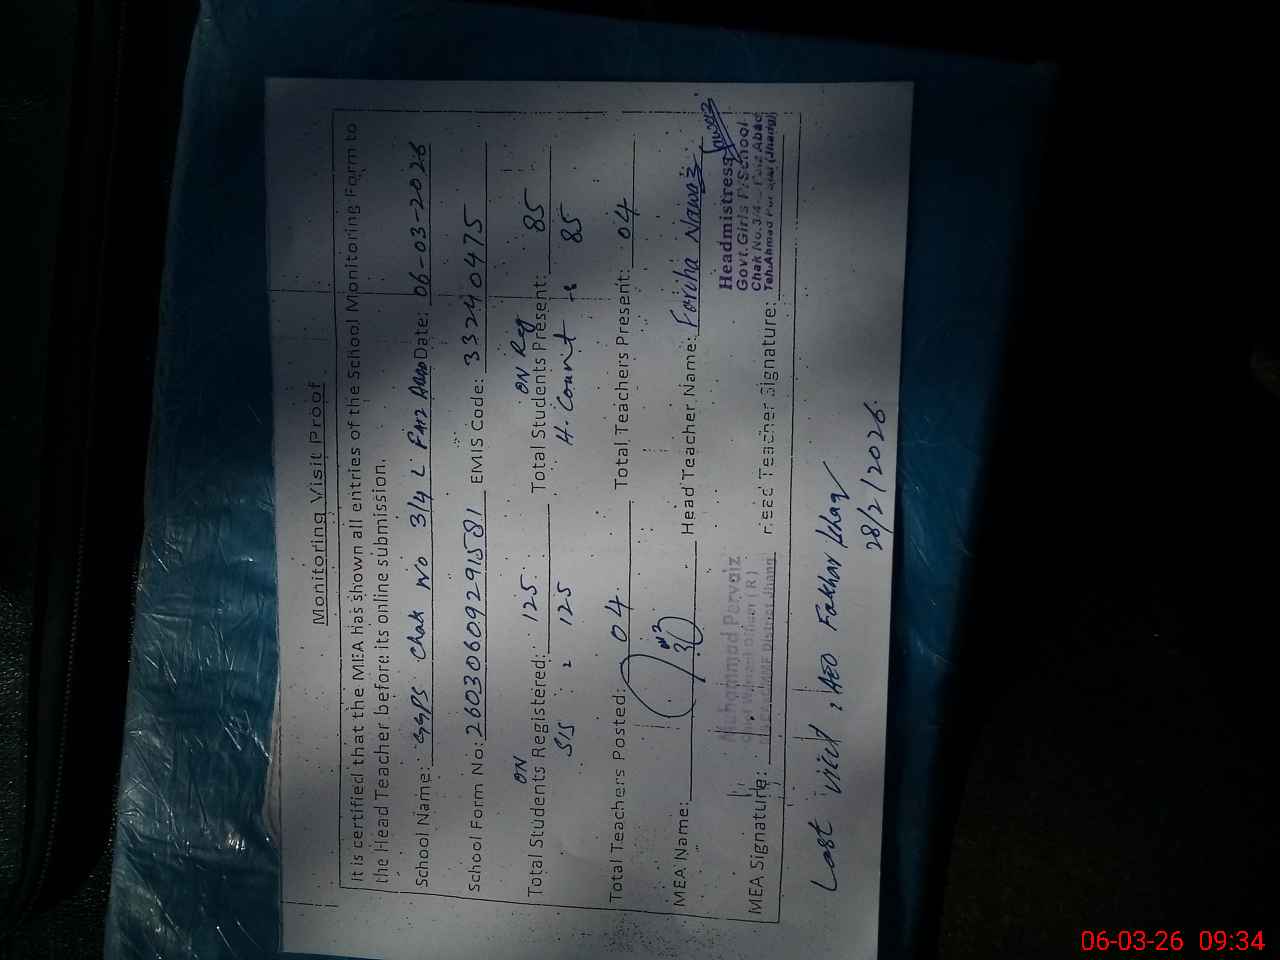 Monitoring Visit Proof
It is certified that the MEA has shown all entries of the School Monitoring Form to
the Head Teacher before its online submission.
School Name: GGPS Chak No 3/4 L Faiz Abad Date: 06-03-2026
School Form No: 26030609291581 EMIS Code: 33240475
ON ON Reg
Total Students Registered: 125 Total Students Present: 85
SIS 125 H. Count 85
Total Teachers Posted: 04 Total Teachers Present: 04
MEA Name: Head Teacher Name: Fariha Nawaz
Muhammad Pervaiz
District Jhang
MEA Signature: Head Teacher Signature:
Headmistress
Govt. Girls P/School
Chak No.3/4-L Faiz Abad
Teh. Ahmad Pur Sial (Jhang)
Last Visit, AEO Fakhar
28/2/2026
06-03-26 09:34